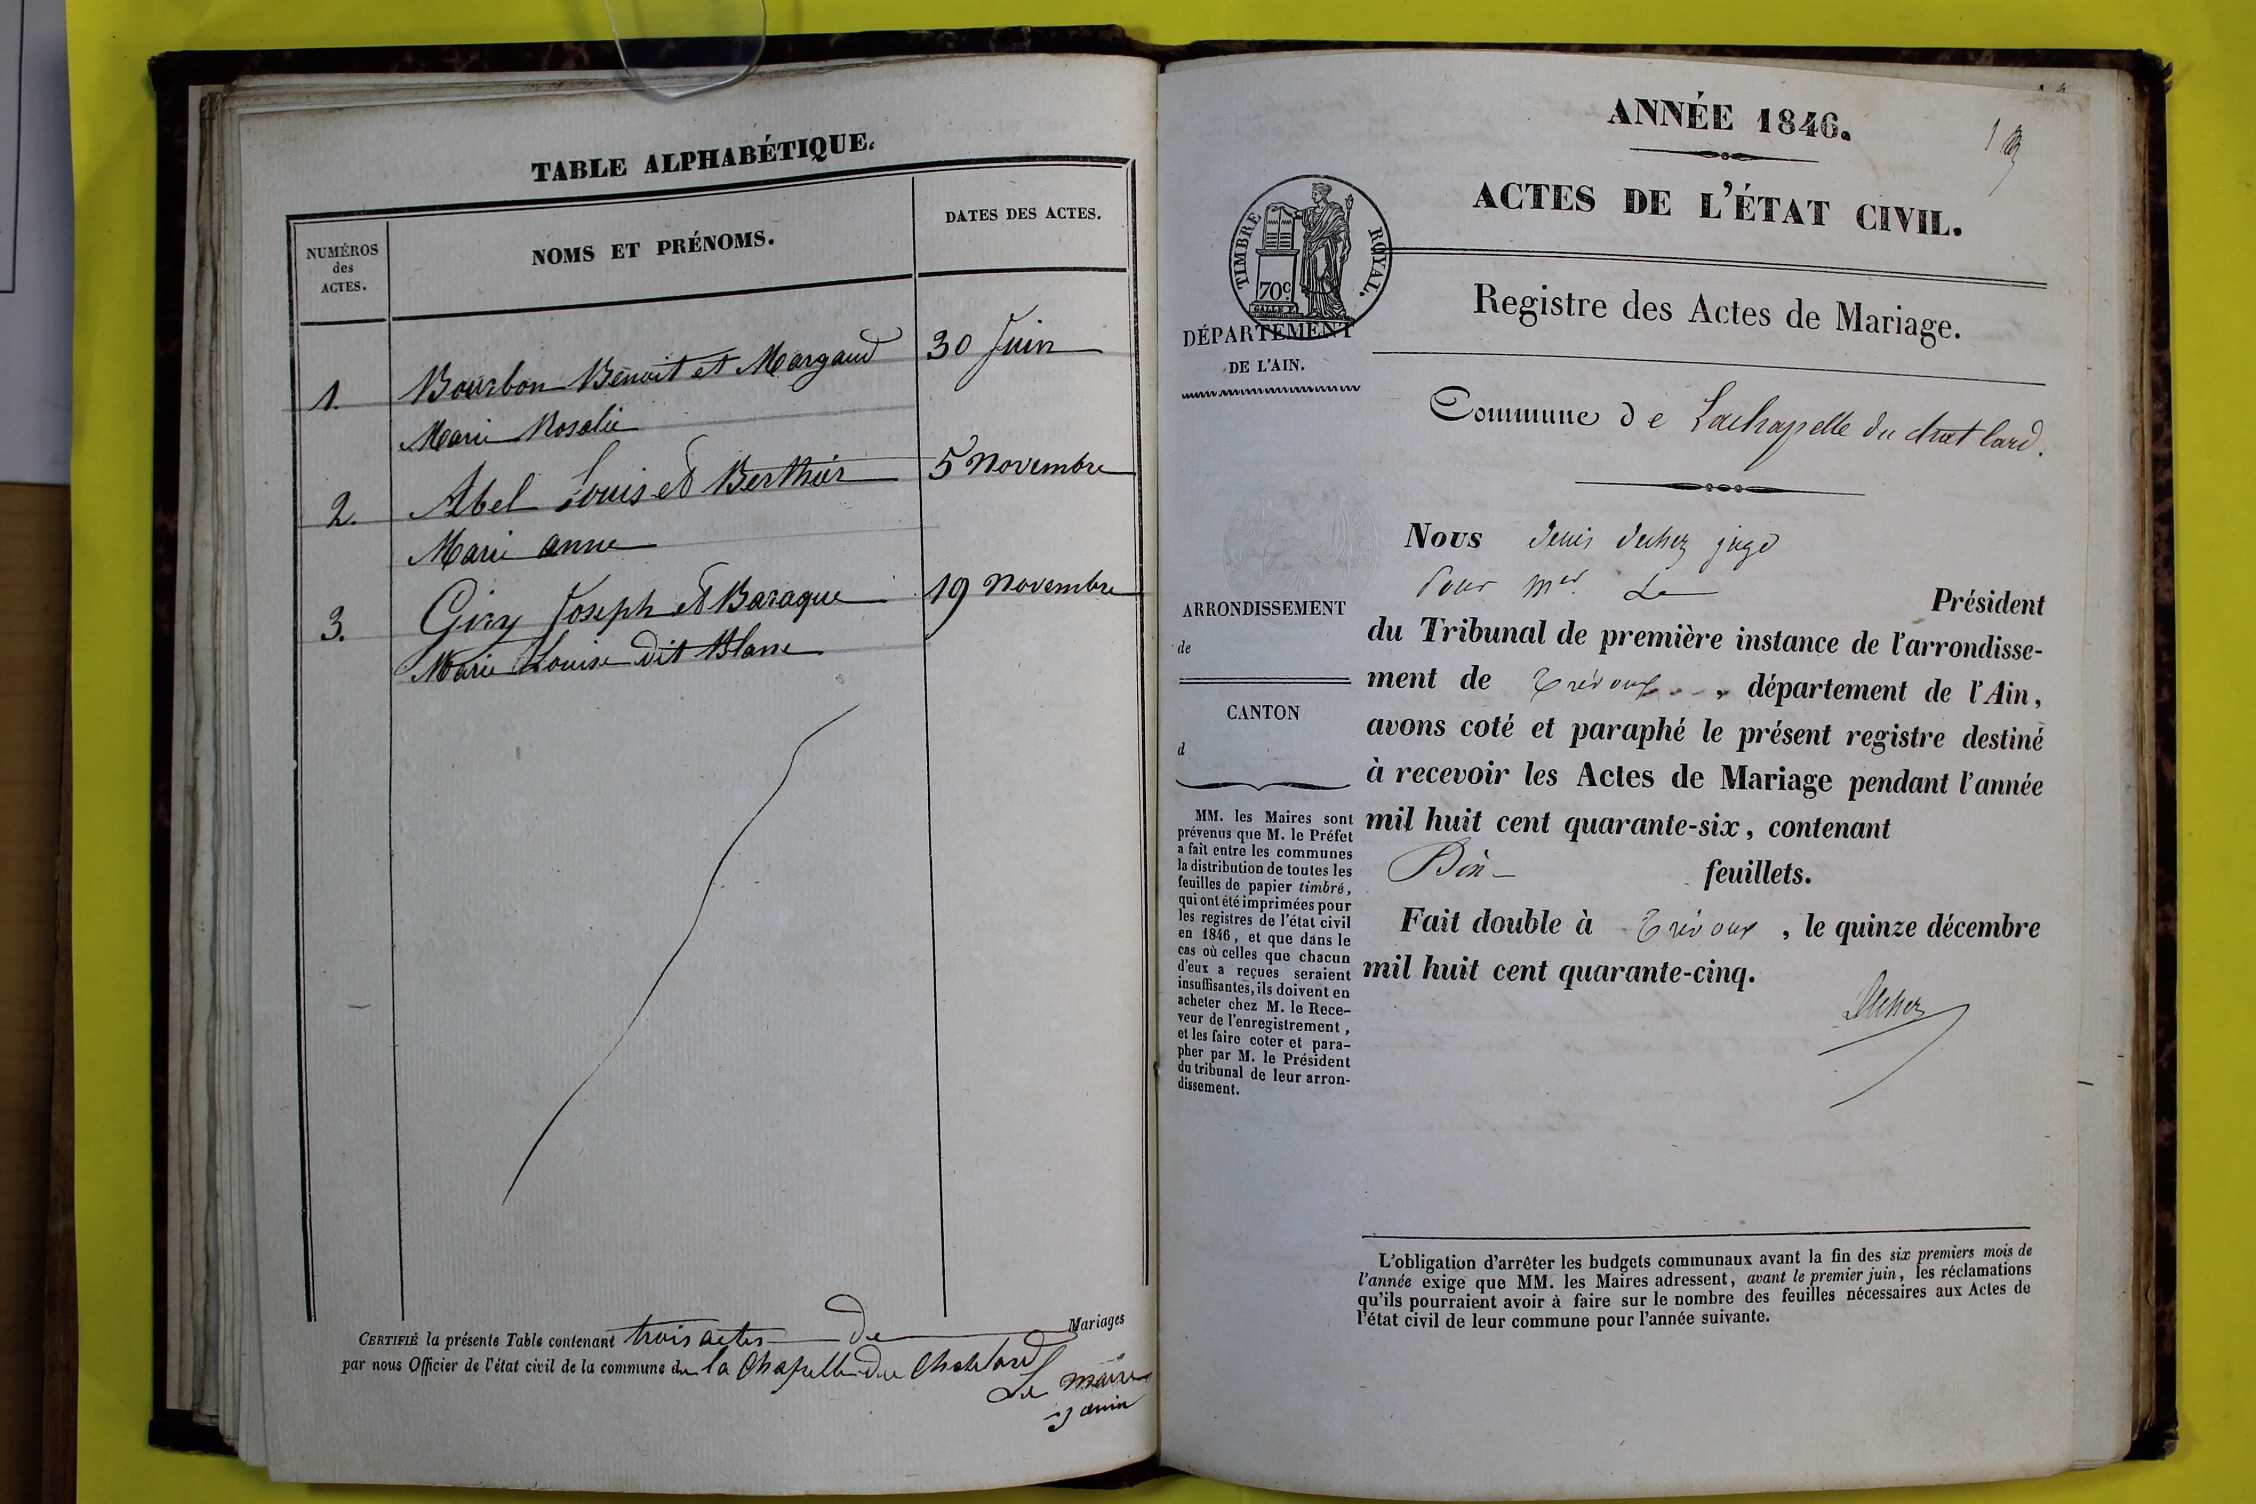 TABLE ALPHABÉTIQUE.
NUMÉROS
des
ACTES.
NOMS ET PRÉNOMS.
DATES DES ACTES.
1. Bourbon Benoit et Margaud 30 Juin
Marie Rosalie
2. Abel Louis et Berthier 5 Novembre
Marie anne
3. Giry Joseph et Baraque 19 Novembre
Marie Louise dit Blanc
CERTIFIÉ la présente Table contenant trois actes de Mariages
par nous Officier de l'état civil de la commune de la Chapelle du Chatelard
Le maire
Janin
ANNÉE 1846.
1
ACTES DE L'ÉTAT CIVIL.
TIMBRE ROYAL.
70c
DÉPARTEMENT
DE L'AIN.
Registre des Actes de Mariage.
Commune de Lachapelle du chat lard.
Nous denis duchez juge
Pour Mr. Le Président
du Tribunal de première instance de l'arrondisse-
ment de Trévoux, département de l'Ain,
avons coté et paraphé le présent registre destiné
à recevoir les Actes de Mariage pendant l'année
mil huit cent quarante-six, contenant
Dix feuillets.
Fait double à Trévoux, le quinze décembre
mil huit cent quarante-cinq.
Duchez
ARRONDISSEMENT
de
CANTON
d
MM. les Maires sont
prévenus que M. le Préfet
a fait entre les communes
la distribution de toutes les
feuilles de papier timbré,
qui ont été imprimées pour
les registres de l'état civil
en 1846, et que dans le
cas où celles que chacun
d'eux a reçues seraient
insuffisantes, ils doivent en
acheter chez M. le Rece-
veur de l'enregistrement,
et les faire coter et para-
pher par M. le Président
du tribunal de leur arron-
dissement.
L'obligation d'arrêter les budgets communaux avant la fin des six premiers mois de
l'année exige que MM. les Maires adressent, avant le premier juin, les réclamations
qu'ils pourraient avoir à faire sur le nombre des feuilles nécessaires aux Actes de
l'état civil de leur commune pour l'année suivante.